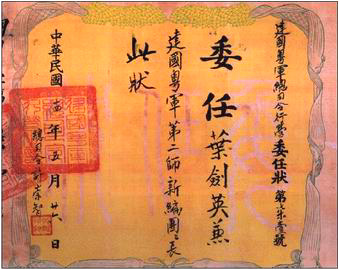 建國粵軍總司令行營委任狀第六柒壹號
委任葉劍英兼
建國粵軍第二師新編團團長
此狀
總司令許崇智
中華民國十四年五月廿六日